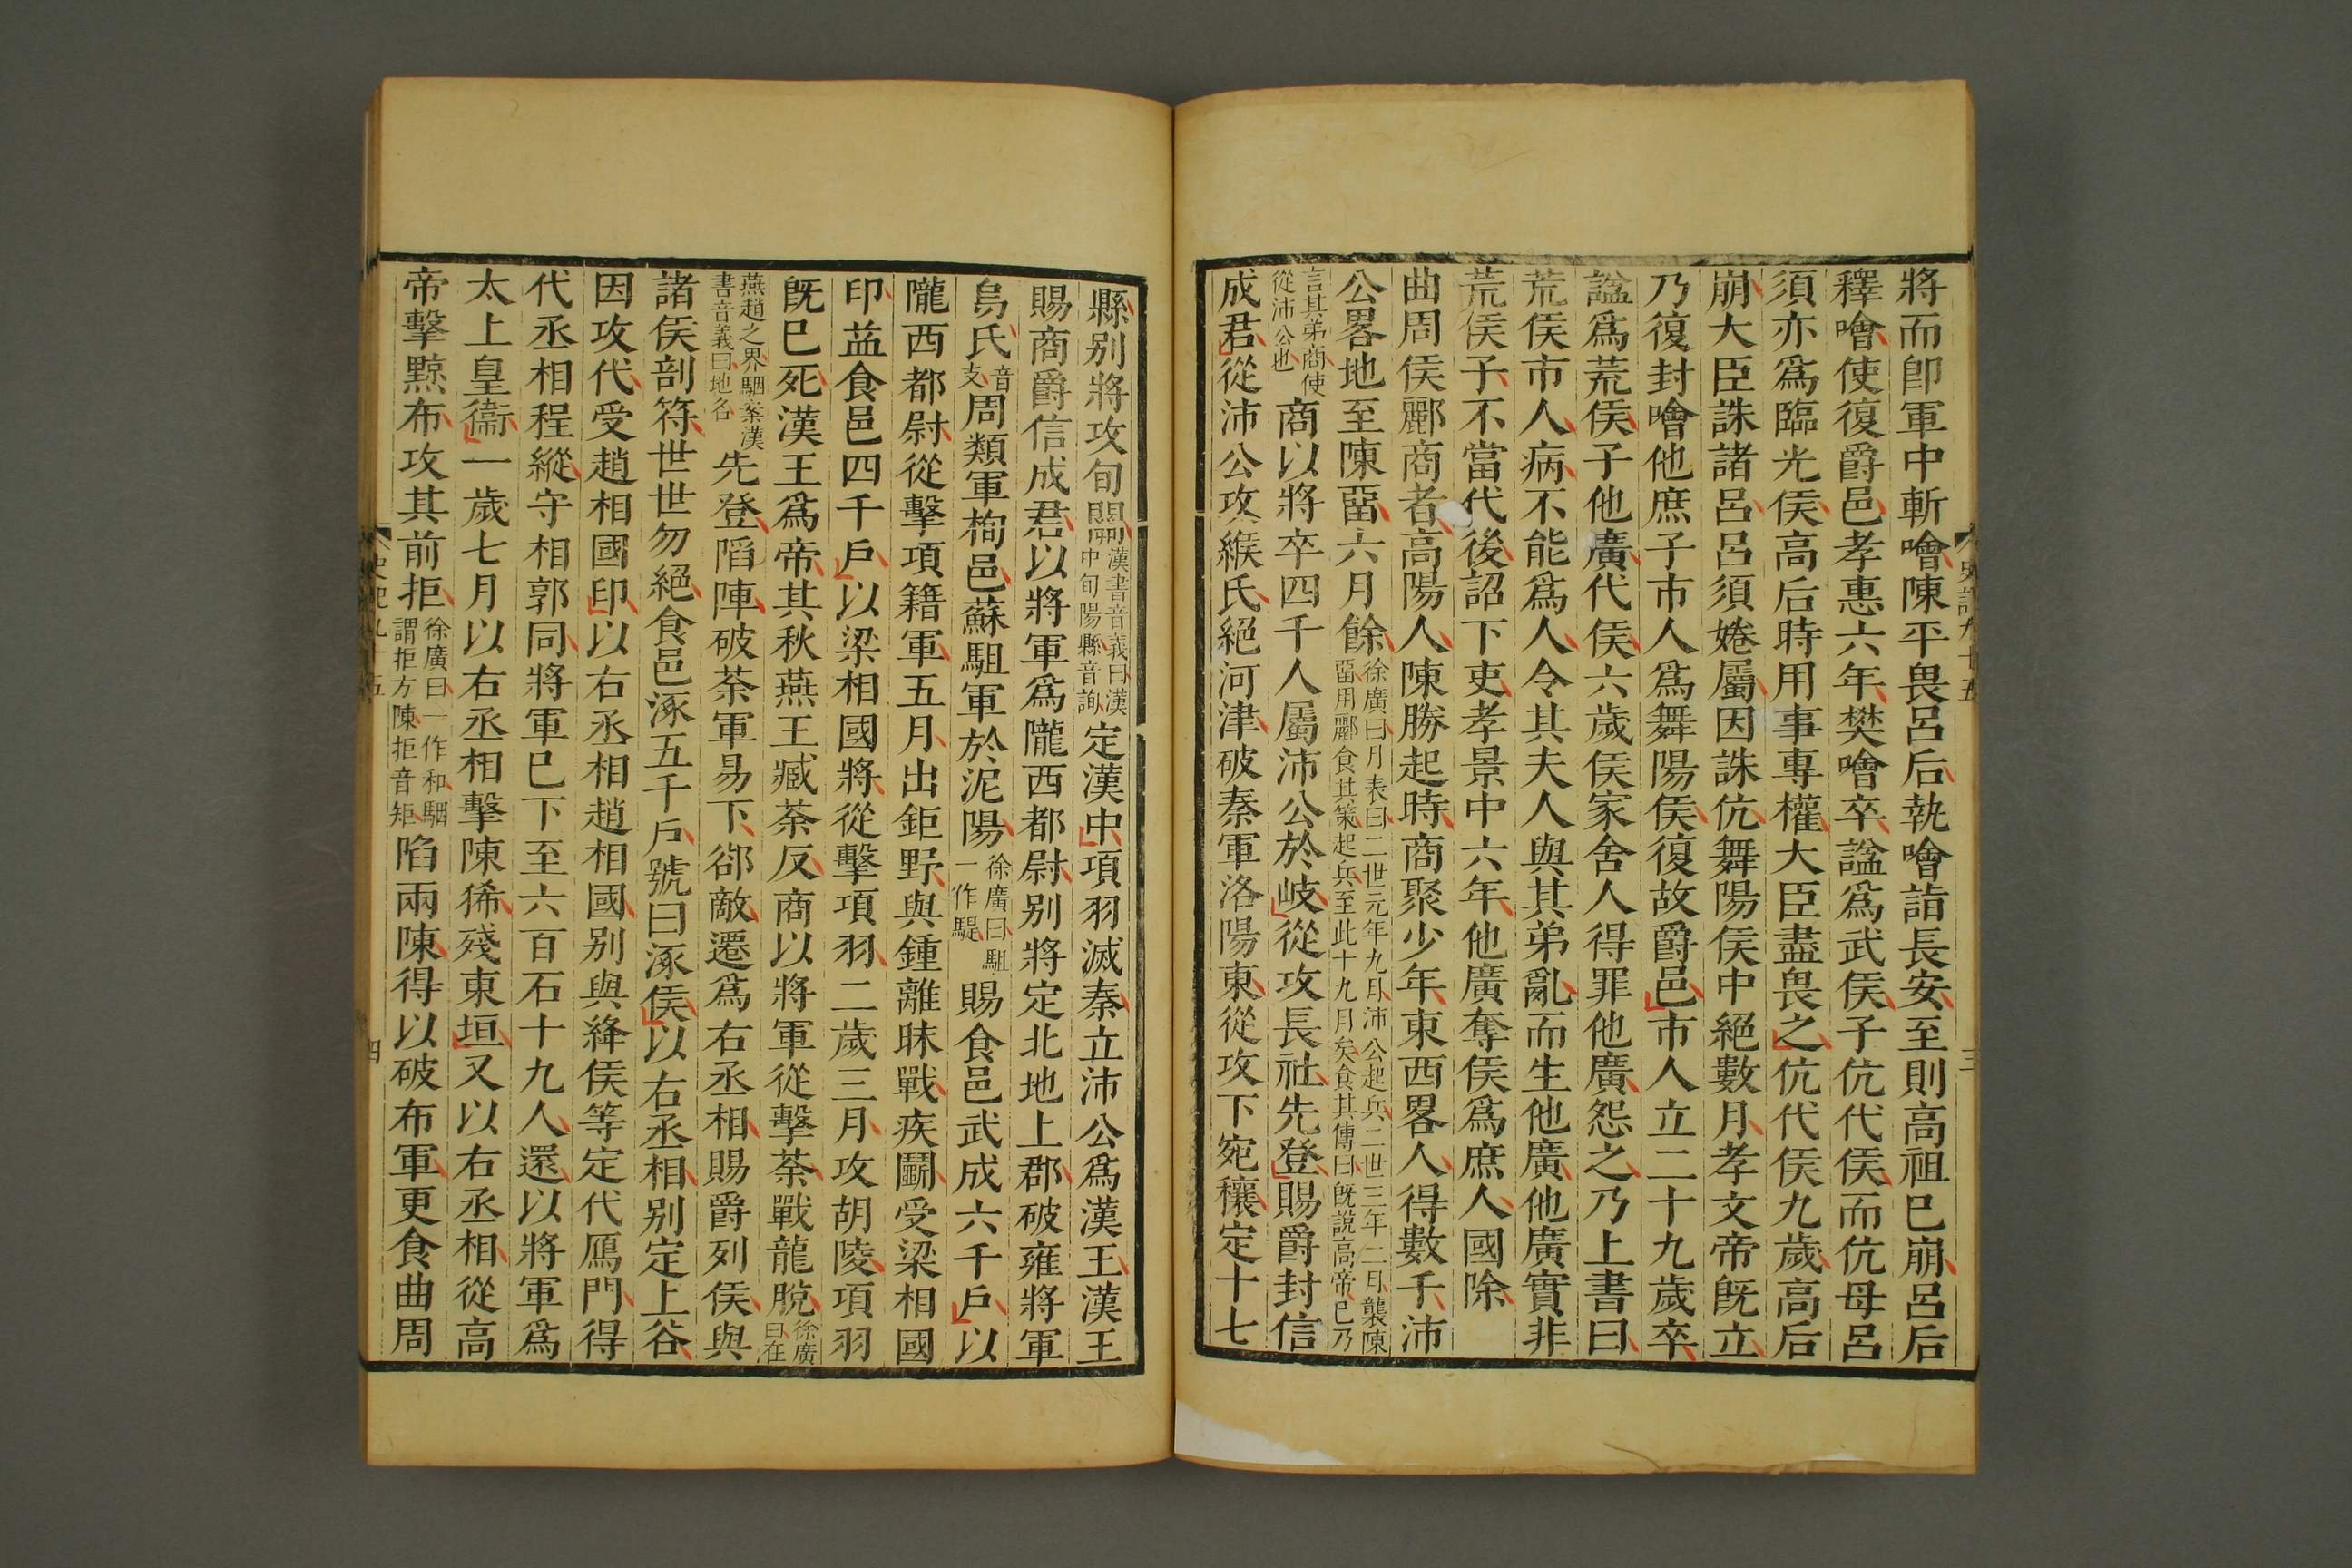 將而卽軍中斬噲陳平畏呂后執噲詣長安至則高祖已崩呂后
釋噲使復爵邑孝惠六年樊噲卒諡爲武侯子伉代侯而伉母呂
須亦爲臨光侯高后時用事專權大臣盡畏之伉代侯九歲高后
崩大臣誅諸呂呂須婘屬因誅伉舞陽侯中絕數月孝文帝旣立
乃復封噲他庶子市人爲舞陽侯復故爵邑市人立二十九歲卒
諡爲荒侯子他廣代侯六歲侯家舍人得罪他廣怨之乃上書曰
荒侯市人病不能爲人令其夫人與其弟亂而生他廣他廣實非
荒侯子不當代後詔下吏孝景中六年他廣奪侯爲庶人國除
曲周侯酈商者高陽人陳勝起時商聚少年東西畧人得數千沛
公畧地至陳畱六月餘徐廣曰月表曰二世元年九月沛公起兵二世三年二月襲陳畱用酈食其策起兵至此十九月矣食其傳曰旣說高帝已乃
言其弟商使從沛公也商以將卒四千人屬沛公於岐從攻長社先登賜爵封信
成君從沛公攻緱氏絕河津破秦軍洛陽東從攻下宛穰定十七
史記九十五
三
縣別將攻旬關漢書音義曰漢中旬陽縣音詢定漢中項羽滅秦立沛公爲漢王漢王
賜商爵信成君以將軍爲隴西都尉別將定北地上郡破雍將軍
烏氏音支周類軍栒邑蘇駔軍於泥陽徐廣曰駔一作騠賜食邑武成六千戶以
隴西都尉從擊項籍軍五月出鉅野與鍾離眛戰疾鬭受梁相國
印益食邑四千戶以梁相國將從擊項羽二歲三月攻胡陵項羽
旣已死漢王爲帝其秋燕王臧荼反商以將軍從擊荼戰龍脫徐廣曰在
燕趙之界駰案漢書音義曰地名先登陷陣破荼軍易下郤敵遷爲右丞相賜爵列侯與
諸侯剖符世世勿絕食邑涿五千戶號曰涿侯以右丞相別定上谷
因攻代受趙相國印以右丞相趙相國別與絳侯等定代鴈門得
代丞相程縱守相郭同將軍已下至六百石十九人還以將軍爲
太上皇衞一歲七月以右丞相擊陳豨殘東垣又以右丞相從高
帝擊黥布攻其前拒徐廣曰一作和駰謂拒方陳拒音矩陷兩陳得以破布軍更食曲周
史記九十五
四